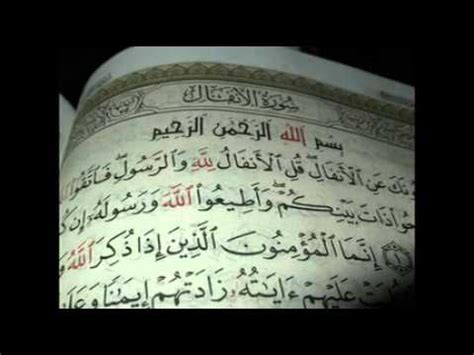 سُورَةُ الْأَنْفَالِ
بِسْمِ اللَّهِ الرَّحْمَٰنِ الرَّحِيمِ
ونَكَ عَنِ الْأَنْفَالِ ۖ قُلِ الْأَنْفَالُ لِلَّهِ وَالرَّسُولِ ۖ فَاتَّقُوا
ذَاتَ بَيْنِكُمْ ۖ وَأَطِيعُوا اللَّهَ وَرَسُولَهُ إِنْ
١ إِنَّمَا الْمُؤْمِنُونَ الَّذِينَ إِذَا ذُكِرَ اللَّهُ
عَلَيْهِمْ ءَايَاتُهُ زَادَتْهُمْ إِيمَانًا